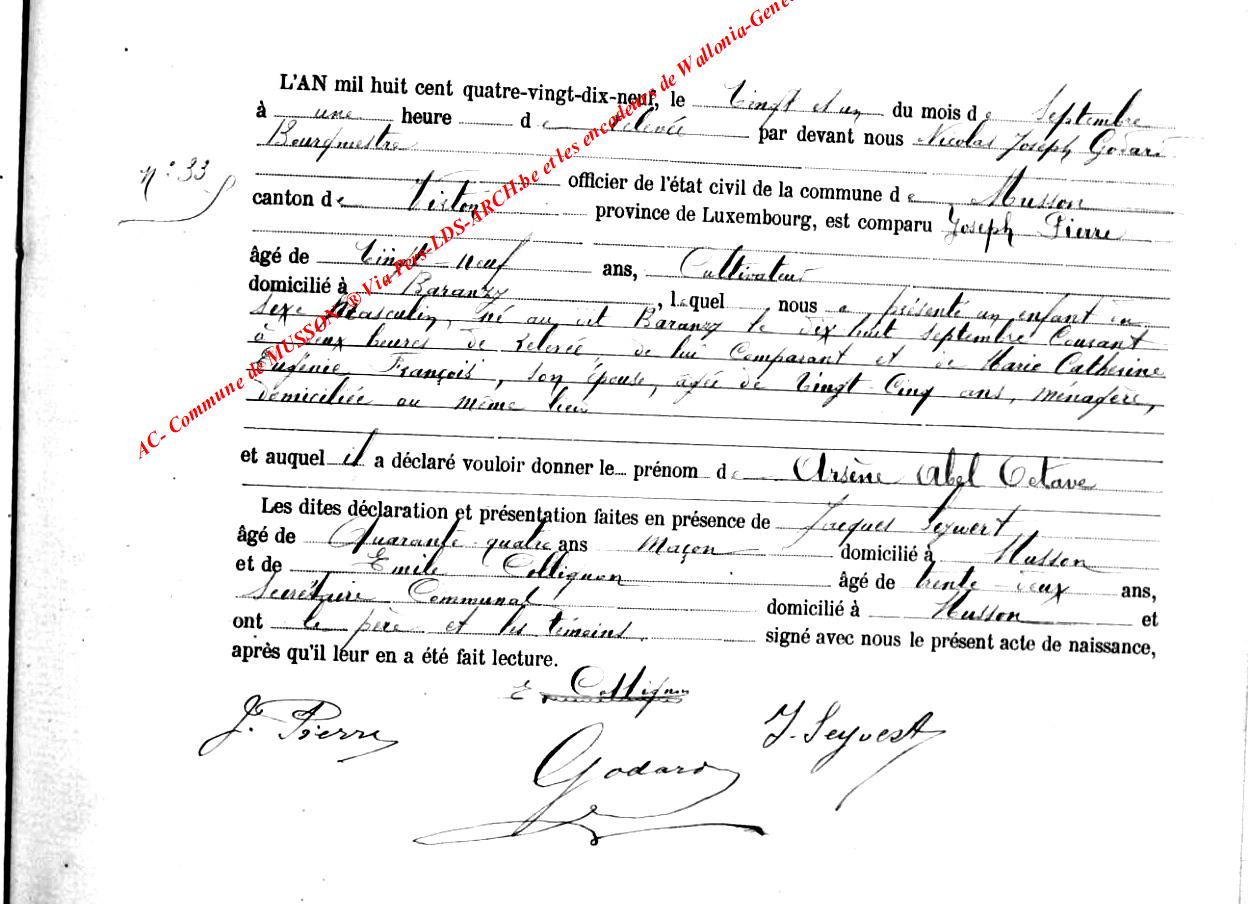 L'AN mil huit cent quatre-vingt-dix-neuf, le Vingt et un du mois de Septembre
à une heure de relevée par devant nous Nicolas Joseph Godard
Bourgmestre
N° 33
officier de l'état civil de la commune de Musson
canton de Virton province de Luxembourg, est comparu Joseph Pierre
âgé de Vingt-neuf ans, Cultivateur
domicilié à Baranzy, lequel nous a présenté un enfant du
sexe Masculin, né au dit Baranzy le dix huit Septembre Courant
à deux heures de relevée de lui Comparant et de Marie Catherine
Eugénie François, son épouse, agée de Vingt-Cinq ans, ménagère,
domiciliée au même lieu
et auquel il a déclaré vouloir donner le prénom de Arsène Abel Octave
Les dites déclaration et présentation faites en présence de Jacques Seywert
âgé de Quarante-quatre ans Maçon domicilié à Musson
et de Emile Collignon âgé de trente-deux ans,
Secrétaire Communal domicilié à Musson et
ont le père et les témoins signé avec nous le présent acte de naissance,
après qu'il leur en a été fait lecture.
E Collignon
J. Pierre
J. Seywert
Godard
AC- Commune de MUSSON ® Via Pers-LDS-ARCH.be et les encodeurs de Wallonia-Gene